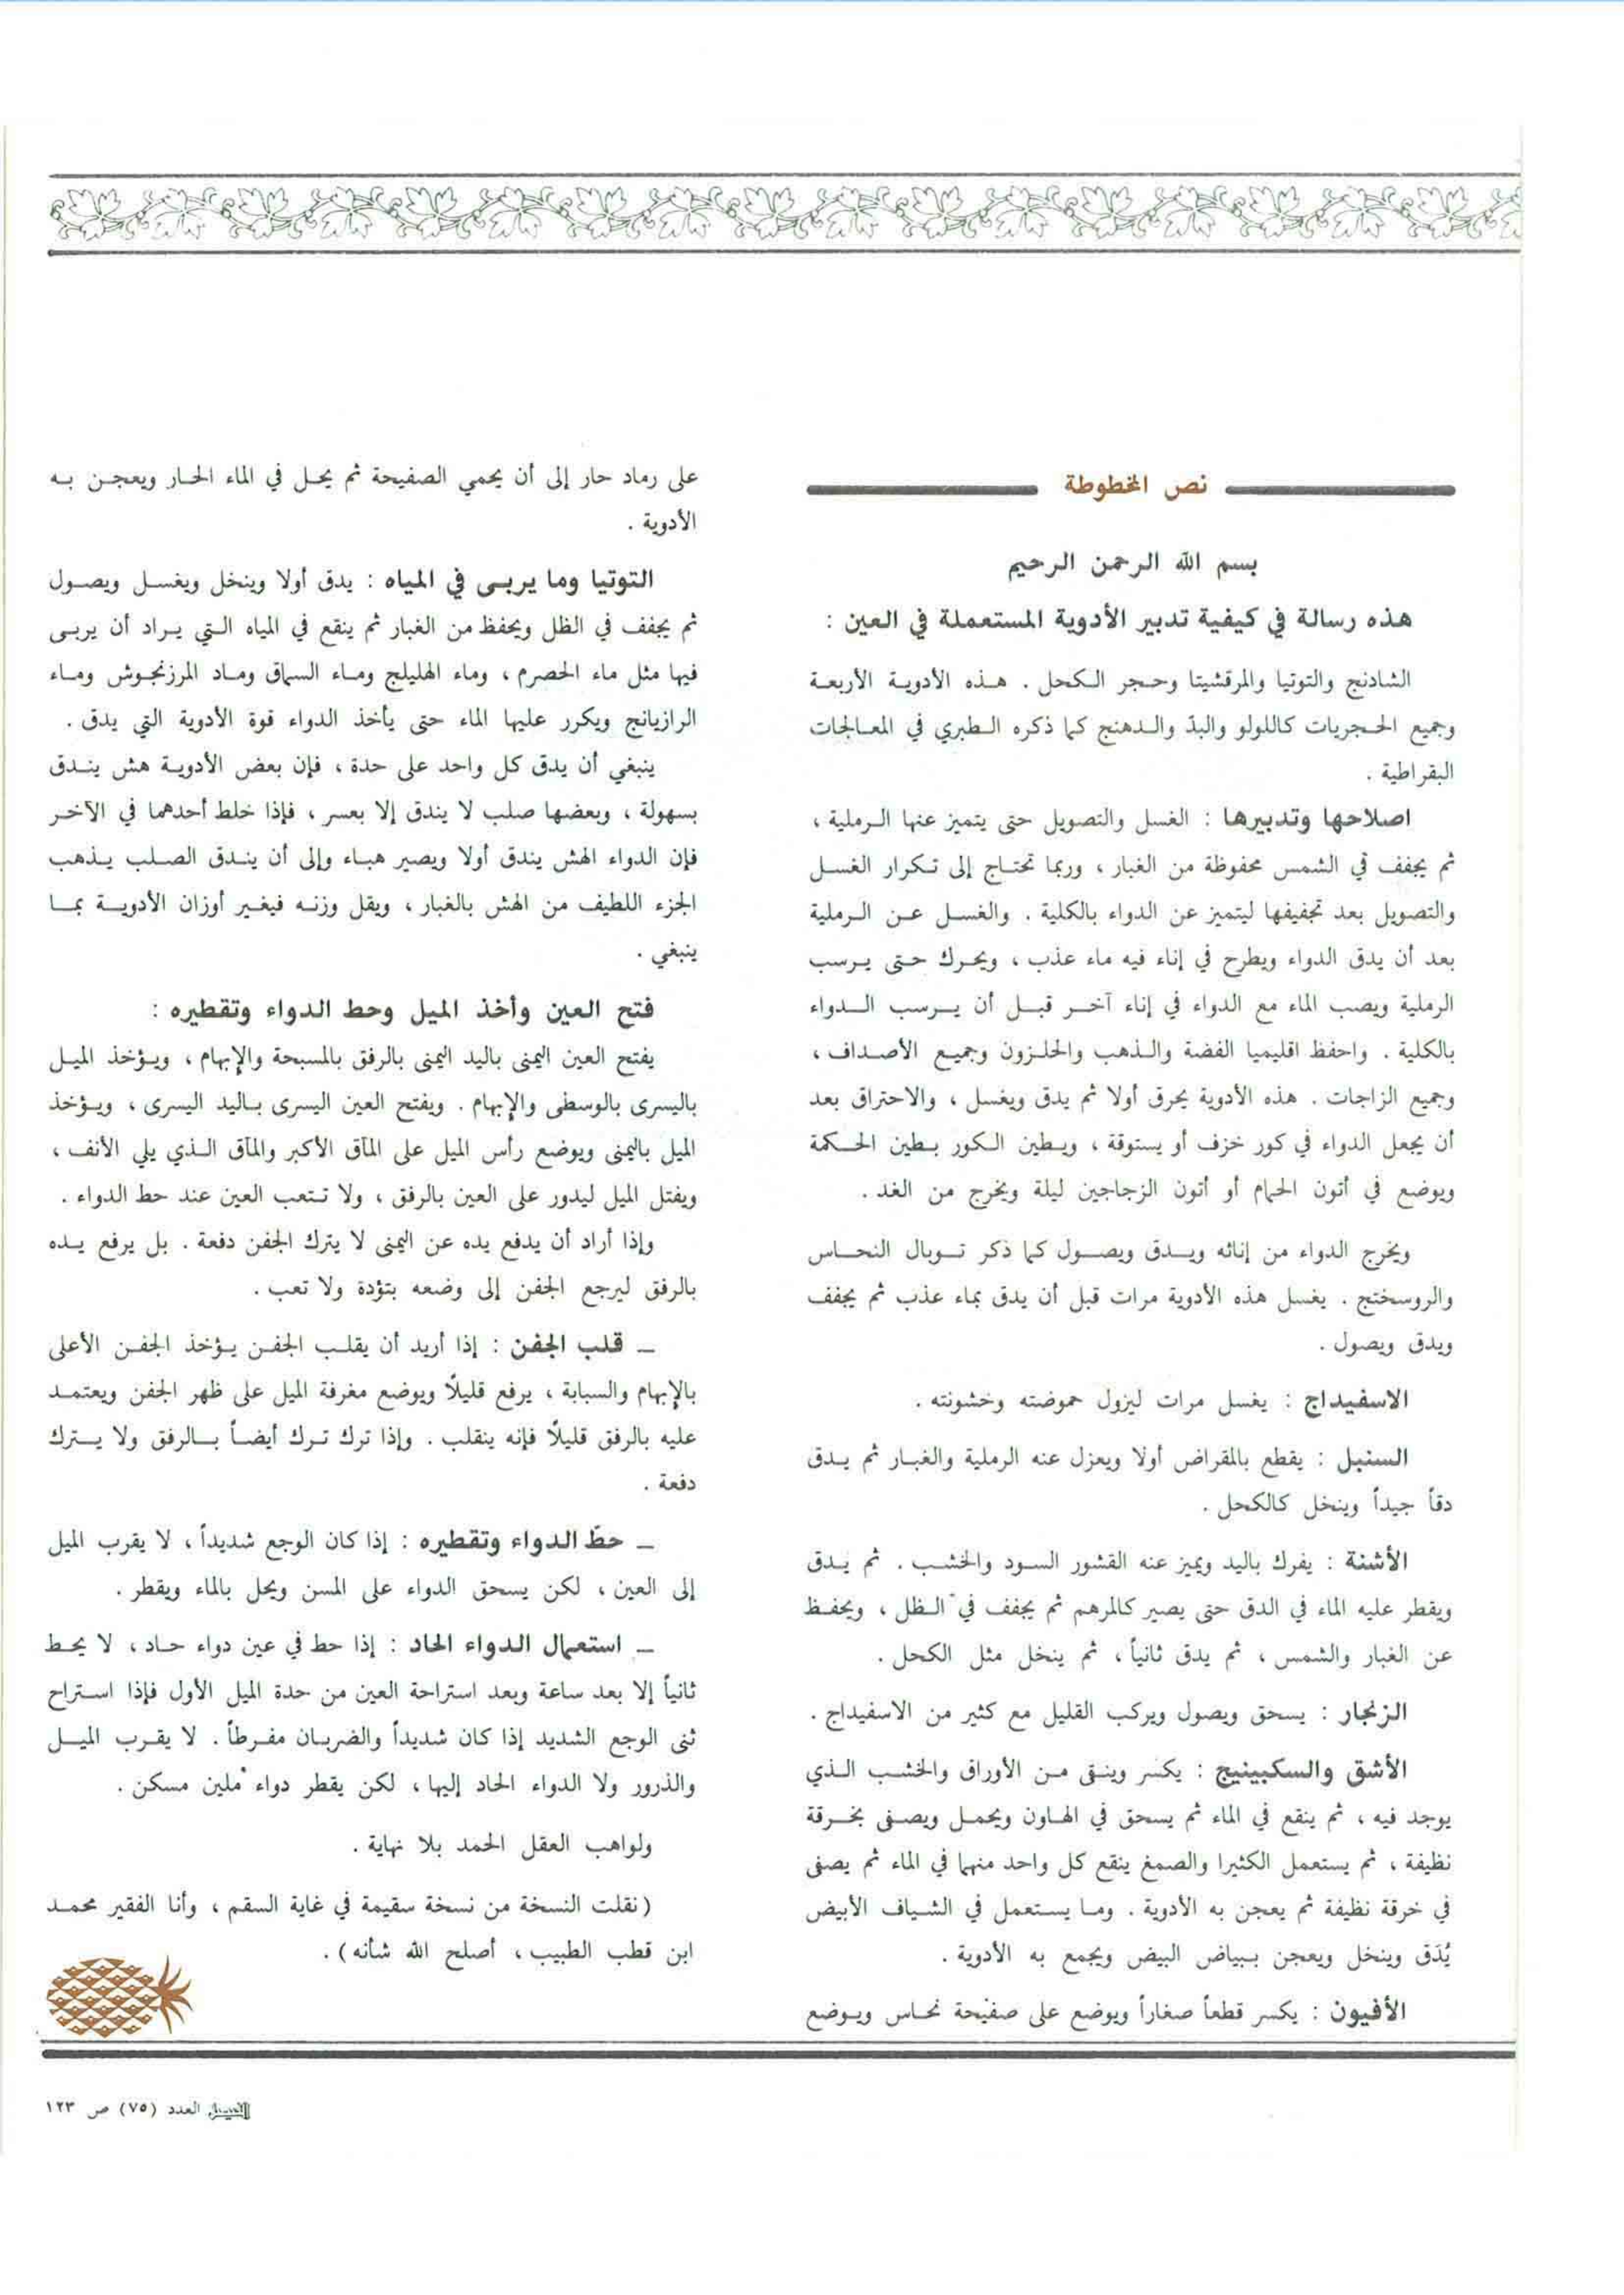 نص المخطوطة
بسم الله الرحمن الرحيم
هذه رسالة في كيفية تدبير الأدوية المستعملة في العين :
الشادنج والتوتيا والمرقشيتا وحجر الكحل . هذه الأدوية الأربعة
وجميع الحجريات كاللولو والبدّ والدهنج كما ذكره الطبري في المعالجات
البقراطية .
اصلاحها وتدبيرها : الغسل والتصويل حتى يتميز عنها الرملية ،
ثم يجفف في الشمس محفوظة من الغبار ، وربما تحتاج إلى تكرار الغسل
والتصويل بعد تجفيفها ليتميز عن الدواء بالكلية . والغسل عن الرملية
بعد أن يدق الدواء ويطرح في إناء فيه ماء عذب ، ويحرك حتى يرسب
الرملية ويصب الماء مع الدواء في إناء آخر قبل أن يرسب الدواء
بالكلية . واحفظ اقليميا الفضة والذهب والحلزون وجميع الأصداف ،
وجميع الزاجات . هذه الأدوية يحرق أولا ثم يدق ويغسل ، والاحتراق بعد
أن يجعل الدواء في كور خزف أو بستوقة ، ويطين الكور بطين الحكمة
ويوضع في أتون الحمام أو أتون الزجاجين ليلة ويخرج من الغد .
ويخرج الدواء من إنائه ويدق ويصول كما ذكر توبال النحاس
والروسختج . يغسل هذه الأدوية مرات قبل أن يدق بماء عذب ثم يجفف
ويدق ويصول .
الاسفيداج : يغسل مرات ليزول حموضته وخشونته .
السنبل : يقطع بالمقراض أولا ويعزل عنه الرملية والغبار ثم يدق
دقاً جيداً وينخل كالكحل .
الأشنة : يفرك باليد ويميز عنه القشور السود والخشب . ثم يدق
ويقطر عليه الماء في الدق حتى يصير كالمرهم ثم يجفف في الظل ، ويحفظ
عن الغبار والشمس ، ثم يدق ثانياً ، ثم ينخل مثل الكحل .
الزنجار : يسحق ويصول ويركب القليل مع كثير من الاسفيداج .
الأشق والسكبينيج : يكسر وينقى من الأوراق والخشب الذي
يوجد فيه ، ثم ينقع في الماء ثم يسحق في الهاون ويحمل ويصفى بخرقة
نظيفة ، ثم يستعمل الكثيرا والصمغ ينقع كل واحد منهما في الماء ثم يصفى
في خرقة نظيفة ثم يعجن به الأدوية . وما يستعمل في الشياف الأبيض
يُدَق وينخل ويعجن ببياض البيض ويجمع به الأدوية .
الأفيون : يكسر قطعاً صغاراً ويوضع على صفيحة نحاس ويوضع
على رماد حار إلى أن يحمي الصفيحة ثم يحل في الماء الحار ويعجن به
الأدوية .
التوتيا وما يربى في المياه : يدق أولا وينخل ويغسل ويصول
ثم يجفف في الظل ويحفظ من الغبار ثم ينقع في المياه التي يراد أن يربى
فيها مثل ماء الحصرم ، وماء الهليلج وماء السماق وماد المرزنجوش وماء
الرازيانج ويكرر عليها الماء حتى يأخذ الدواء قوة الأدوية التي يدق .
ينبغي أن يدق كل واحد على حدة ، فإن بعض الأدوية هش يندق
بسهولة ، وبعضها صلب لا يندق إلا بعسر ، فإذا خلط أحدهما في الآخر
فإن الدواء الهش يندق أولا ويصير هباء وإلى أن يندق الصلب يذهب
الجزء اللطيف من الهش بالغبار ، ويقل وزنه فيغير أوزان الأدوية بما
ينبغي .
فتح العين وأخذ الميل وحط الدواء وتقطيره :
يفتح العين اليمنى باليد اليمنى بالرفق بالمسبحة والإبهام ، ويؤخذ الميل
باليسرى بالوسطى والإبهام . ويفتح العين اليسرى باليد اليسرى ، ويؤخذ
الميل باليمنى ويوضع رأس الميل على المآق الأكبر والمآق الذي يلي الأنف ،
ويفتل الميل ليدور على العين بالرفق ، ولا تتعب العين عند حط الدواء .
وإذا أراد أن يدفع يده عن اليمنى لا يترك الجفن دفعة . بل يرفع يده
بالرفق ليرجع الجفن إلى وضعه بتؤدة ولا تعب .
ــ قلب الجفن : إذا أريد أن يقلب الجفن يؤخذ الجفن الأعلى
بالإبهام والسبابة ، يرفع قليلًا ويوضع مغرفة الميل على ظهر الجفن ويعتمد
عليه بالرفق قليلًا فإنه ينقلب . وإذا ترك ترك أيضاً بالرفق ولا يترك
دفعة .
ــ حطّ الدواء وتقطيره : إذا كان الوجع شديداً ، لا يقرب الميل
إلى العين ، لكن يسحق الدواء على المسن ويحل بالماء ويقطر .
ــ استعمال الدواء الحاد : إذا حط في عين دواء حاد ، لا يحط
ثانياً إلا بعد ساعة وبعد استراحة العين من حدة الميل الأول فإذا استراح
ثنى الوجع الشديد إذا كان شديداً والضربان مفرطاً . لا يقرب الميل
والذرور ولا الدواء الحاد إليها ، لكن يقطر دواء ملين مسكن .
ولواهب العقل الحمد بلا نهاية .
(نقلت النسخة من نسخة سقيمة في غاية السقم ، وأنا الفقير محمد
ابن قطب الطبيب ، أصلح الله شأنه) .
الفيصل العدد (٧٥) ص ١٢٣